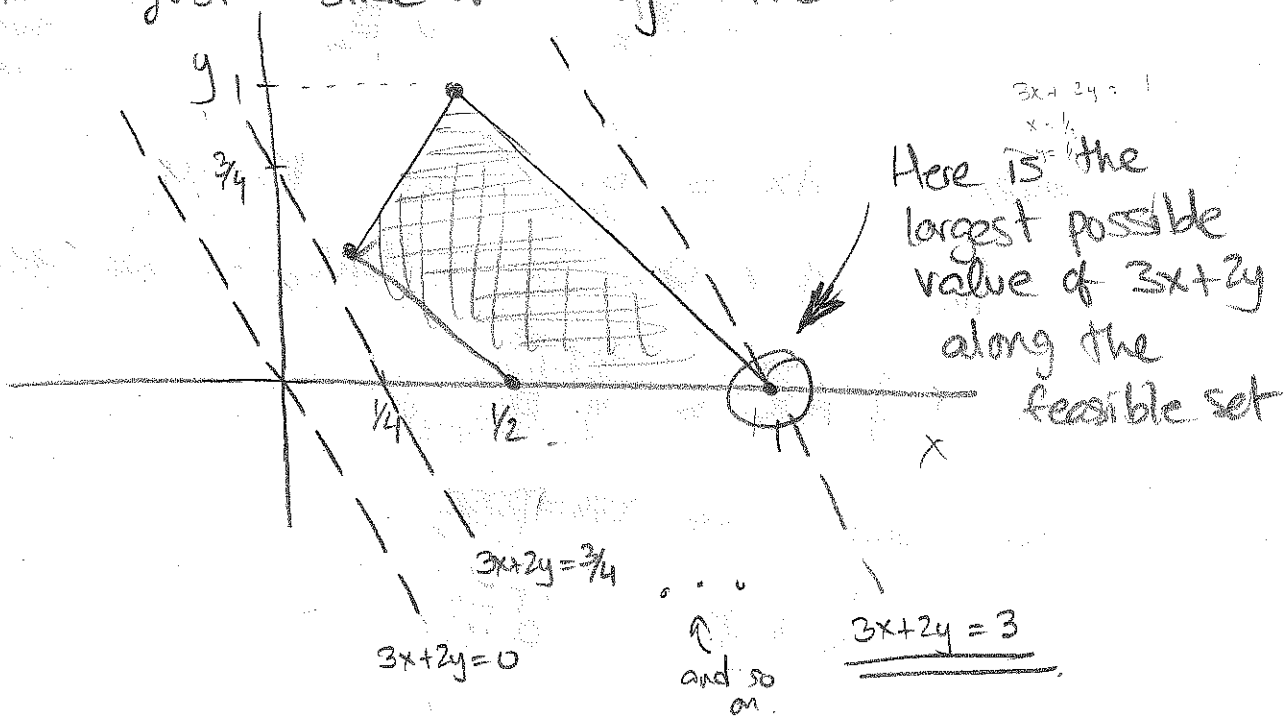 y 1
3/4
3x + 2y = 1
Here is the
largest possible
value of 3x+2y
along the
feasible set
1/4
1/2
1
x
3x+2y=3/4
. . .
3x+2y=0
and so
on.
3x+2y = 3